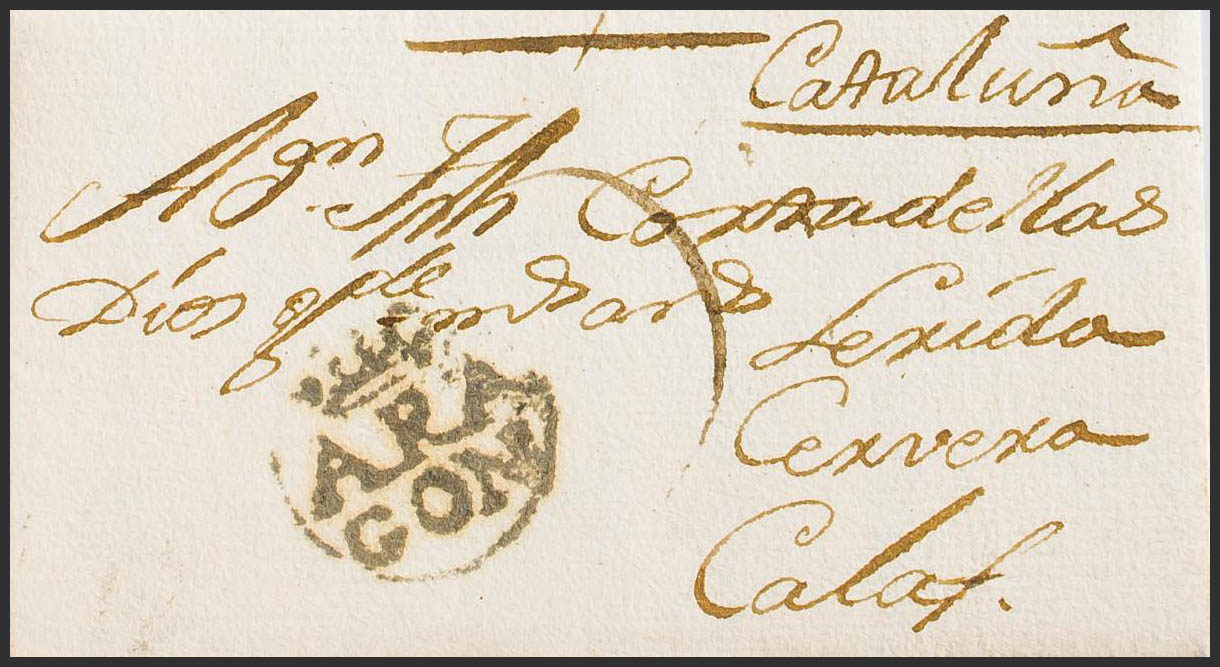 Cataluña
A Dn. Jph Cortadellas
Dios gde ms ans
Lerida
Cervera
Calaf.
ARA
GON